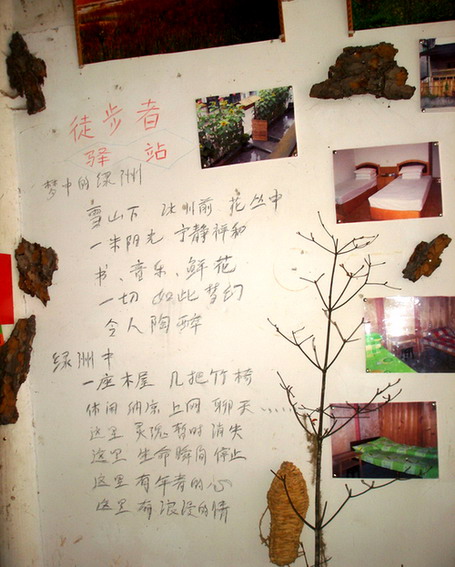 徒步者
驿站
梦中的绿洲
雪山下 冰川前 花丛中
一米阳光 宁静祥和
书、音乐、鲜花
一切 如此梦幻
令人陶醉
绿洲中
一座木屋 几把竹椅
休闲 纳凉 上网 聊天......
这里 灵魂暂时 消失
这里 生命瞬间 停止
这里 有年青的心
这里 有浪漫的情